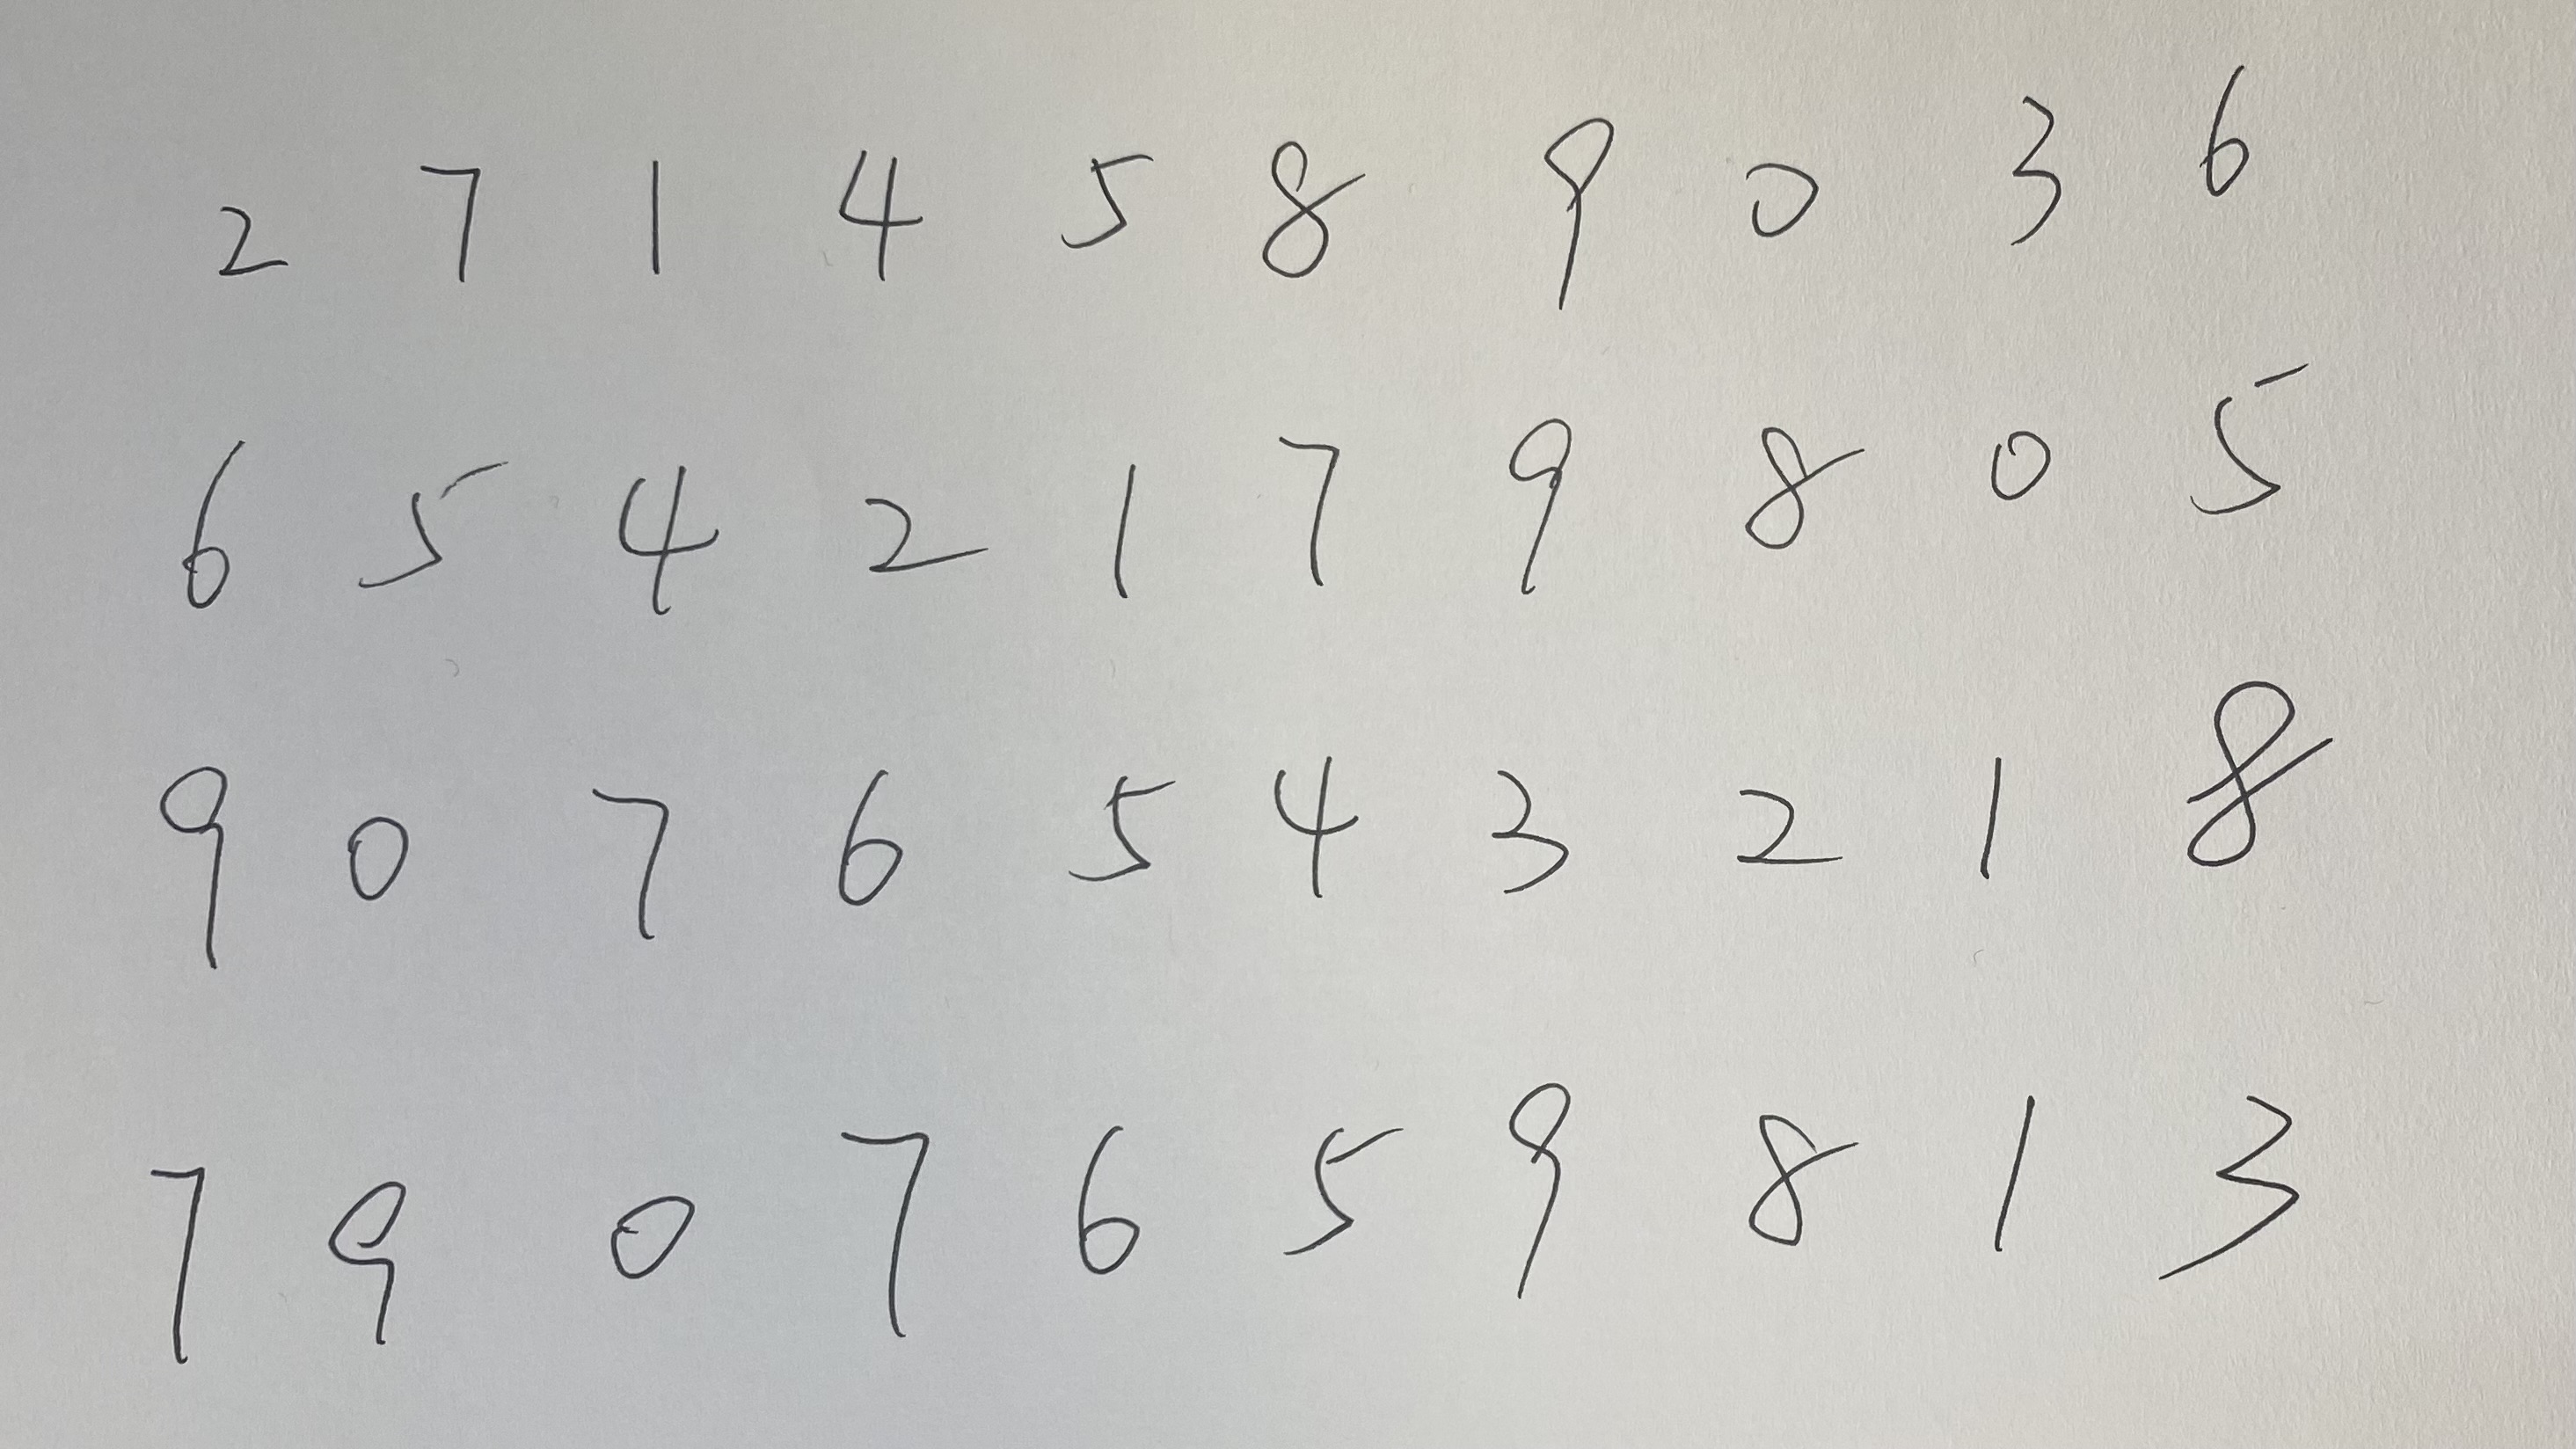 2 7 1 4 5 8 9 0 3 6
6 5 4 2 1 7 9 8 0 5
9 0 7 6 5 4 3 2 1 8
7 9 0 7 6 5 9 8 1 3